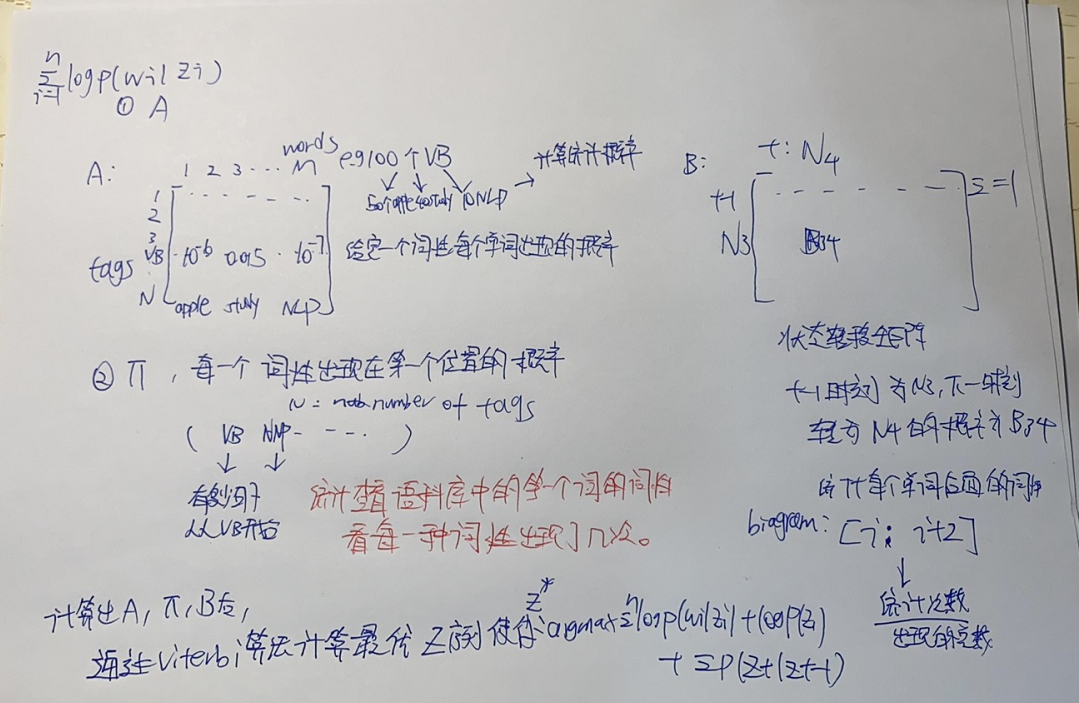 n
Σ log p(wi| zi)
i=1
① A
A:
words
1 2 3 ··· M
e.g 100个VB
50个apple 40study 10NLP → 计算统计概率
1
2
3
tags VB 10^-6 0.015 · 10^-7
N apple study NLP
给定一个词性每个字词出现的概率
② π, 每一个词性出现在第一个位置的概率
N = number of tags
( VB NNP - - - - )
↓ ↓
有多少句子
从VB开始
统计查语料库中的第一个词的词性
看每一种词性出现了几次。
B:
t: N4
t-1
N3 B34 Σ=1
状态转移矩阵
t-1时刻为N3,下一时刻
转为N4的概率为B34
统计每个单词后面的词性
biagram: [i: i+2]
↓
统计次数
出现的总数
计算出A, π, B后,
通过Viterbi算法计算最优Z序列使得 z* argmax Σ^n log p(wi|zi) + log P(zi)
+ Σ P(zt|zt-1)